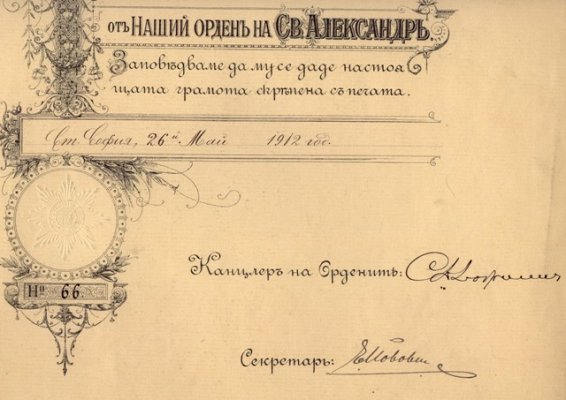 отъ Наший орденъ на Св. Александръ.
Заповѣдваме да му се даде настоя
щата грамота скрѣпена съ печата.
Ст. София, 26й Май 1912 год.
Канцлеръ на Орденитѣ:
Но 66.
Секретарь: